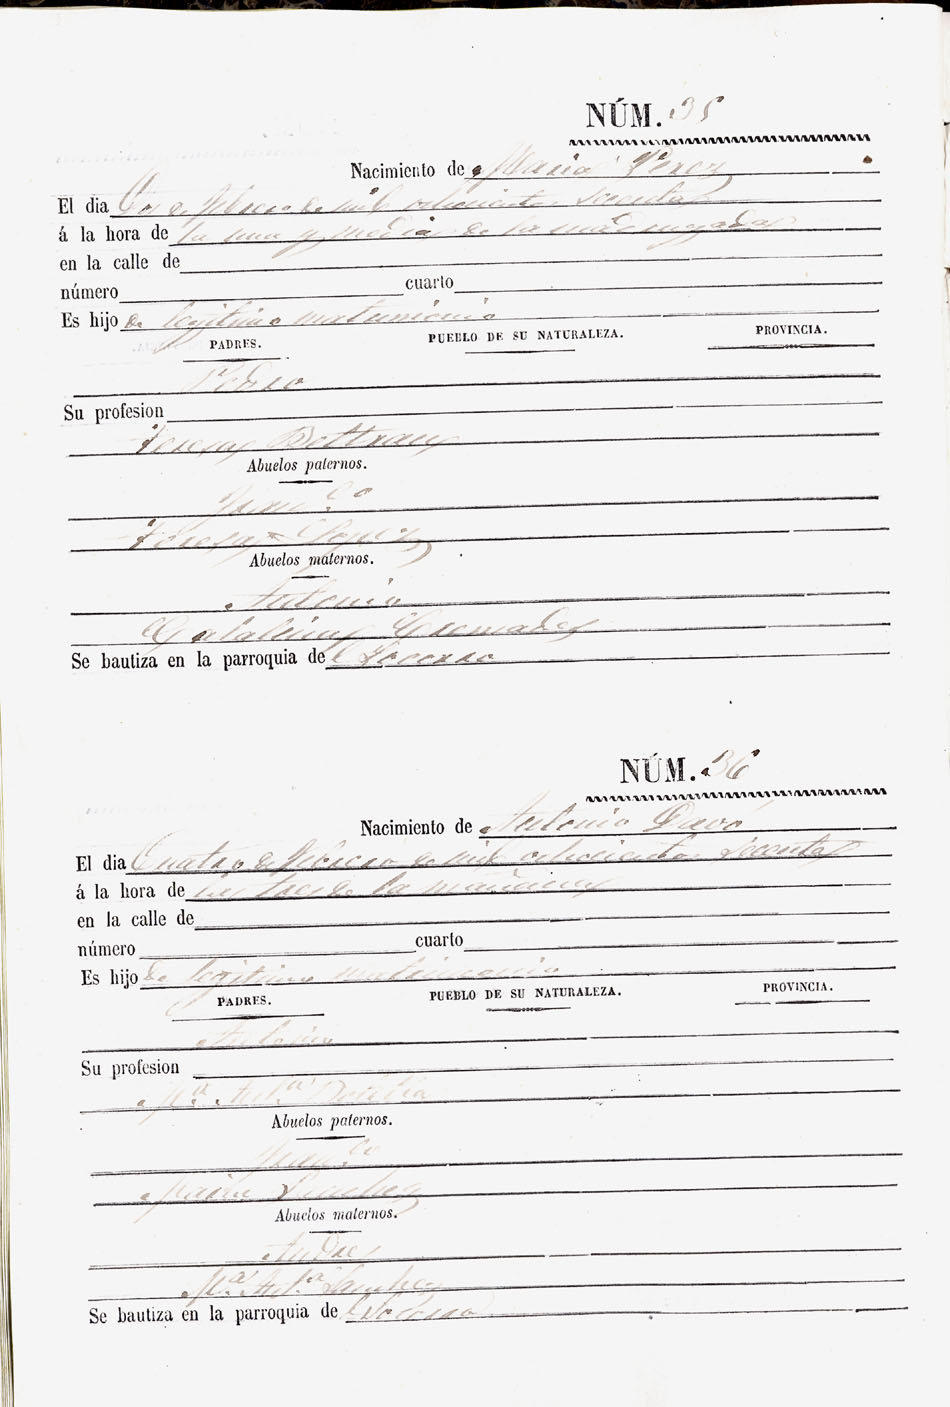 NÚM. 35
Nacimiento de Maria Perez
El dia Dos de Febrero de mil ochocientos sesenta
á la hora de la una y media de la madrugada
en la calle de
número cuarto
Es hijo de legitimo matrimonio
PADRES. PUEBLO DE SU NATURALEZA. PROVINCIA.
Pedro
Su profesion
Teresa Beltran
Abuelos paternos.
Fran.co
Teresa Lopez
Abuelos maternos.
Antonio
Catalina Cremades
Se bautiza en la parroquia de Socorro
NÚM. 36
Nacimiento de Antonio Davó
El dia Cuatro de Febrero de mil ochocientos sesenta
á la hora de las tres de la mañana
en la calle de
número cuarto
Es hijo de legitimo matrimonio
PADRES. PUEBLO DE SU NATURALEZA. PROVINCIA.
Antonio
Su profesion
M.a Ant.a
Abuelos paternos.
Fran.co
Maria Sanchez
Abuelos maternos.
Andres
M.a Ant.a Sanchez
Se bautiza en la parroquia de Socorro